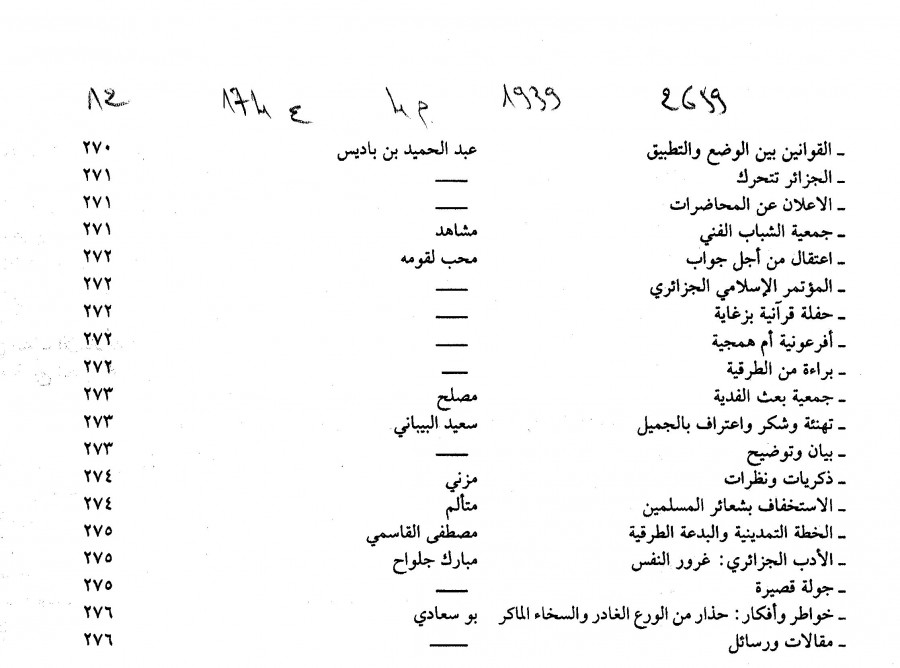 1939 م 4 ع 174 12
ـ القوانين بين الوضع والتطبيق عبد الحميد بن باديس ٢٧٠
ـ الجزائر تتحرك ــــ ٢٧١
ـ الاعلان عن المحاضرات ــــ ٢٧١
ـ جمعية الشباب الفني مشاهد ٢٧١
ـ اعتقال من أجل جواب محب لقومه ٢٧٢
ـ المؤتمر الإسلامي الجزائري ــــ ٢٧٢
ـ حفلة قرآنية بزغاية ــــ ٢٧٢
ـ أفرعونية أم همجية ــــ ٢٧٢
ـ براءة من الطرقية ــــ ٢٧٢
ـ جمعية بعث الفدية مصلح ٢٧٣
ـ تهنئة وشكر واعتراف بالجميل سعيد البيباني ٢٧٣
ـ بيان وتوضيح ــــ ٢٧٣
ـ ذكريات ونظرات مزني ٢٧٤
ـ الاستخفاف بشعائر المسلمين متألم ٢٧٤
ـ الخطة التمدينية والبدعة الطرقية مصطفى القاسمي ٢٧٥
ـ الأدب الجزائري: غرور النفس مبارك جلواح ٢٧٥
ـ جولة قصيرة ــــ ٢٧٥
ـ خواطر وأفكار: حذار من الورع الغادر والسخاء الماكر بو سعادي ٢٧٦
ـ مقالات ورسائل ــــ ٢٧٦